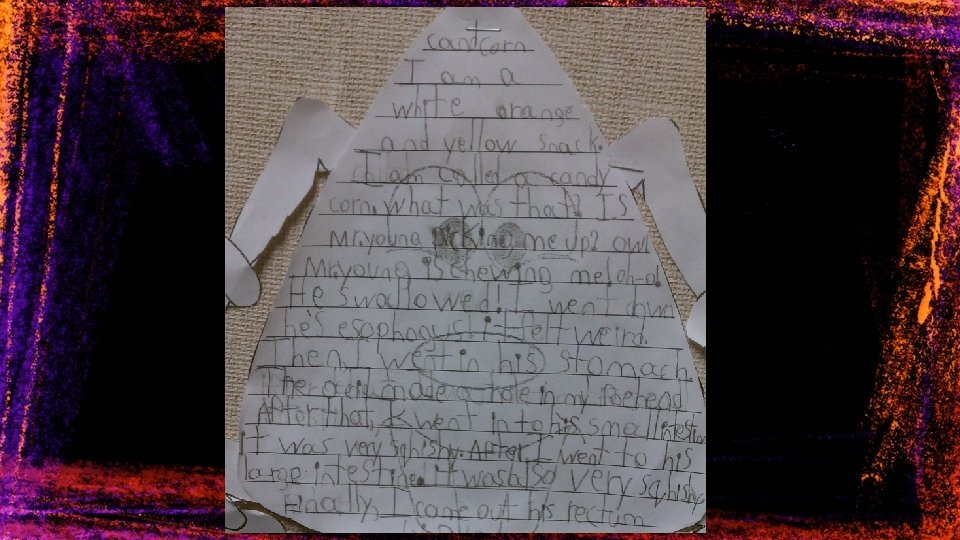 candcorn
I am a
white orange
and yellow snack.
I am called a candy
corn. What was that? Is
Mr.young picking me up? ow!
Mr.young is chewing me! oh-o!
He swallowed! I went down
he's esophagus. it felt weird.
Then, I went in his stomach
The acid made a hole in my forehead
After that, I went in to his small intestin
it was very sqhishy. After I went to his
large intestine. it was so very sqhishy,
Finally, I came out his rectum